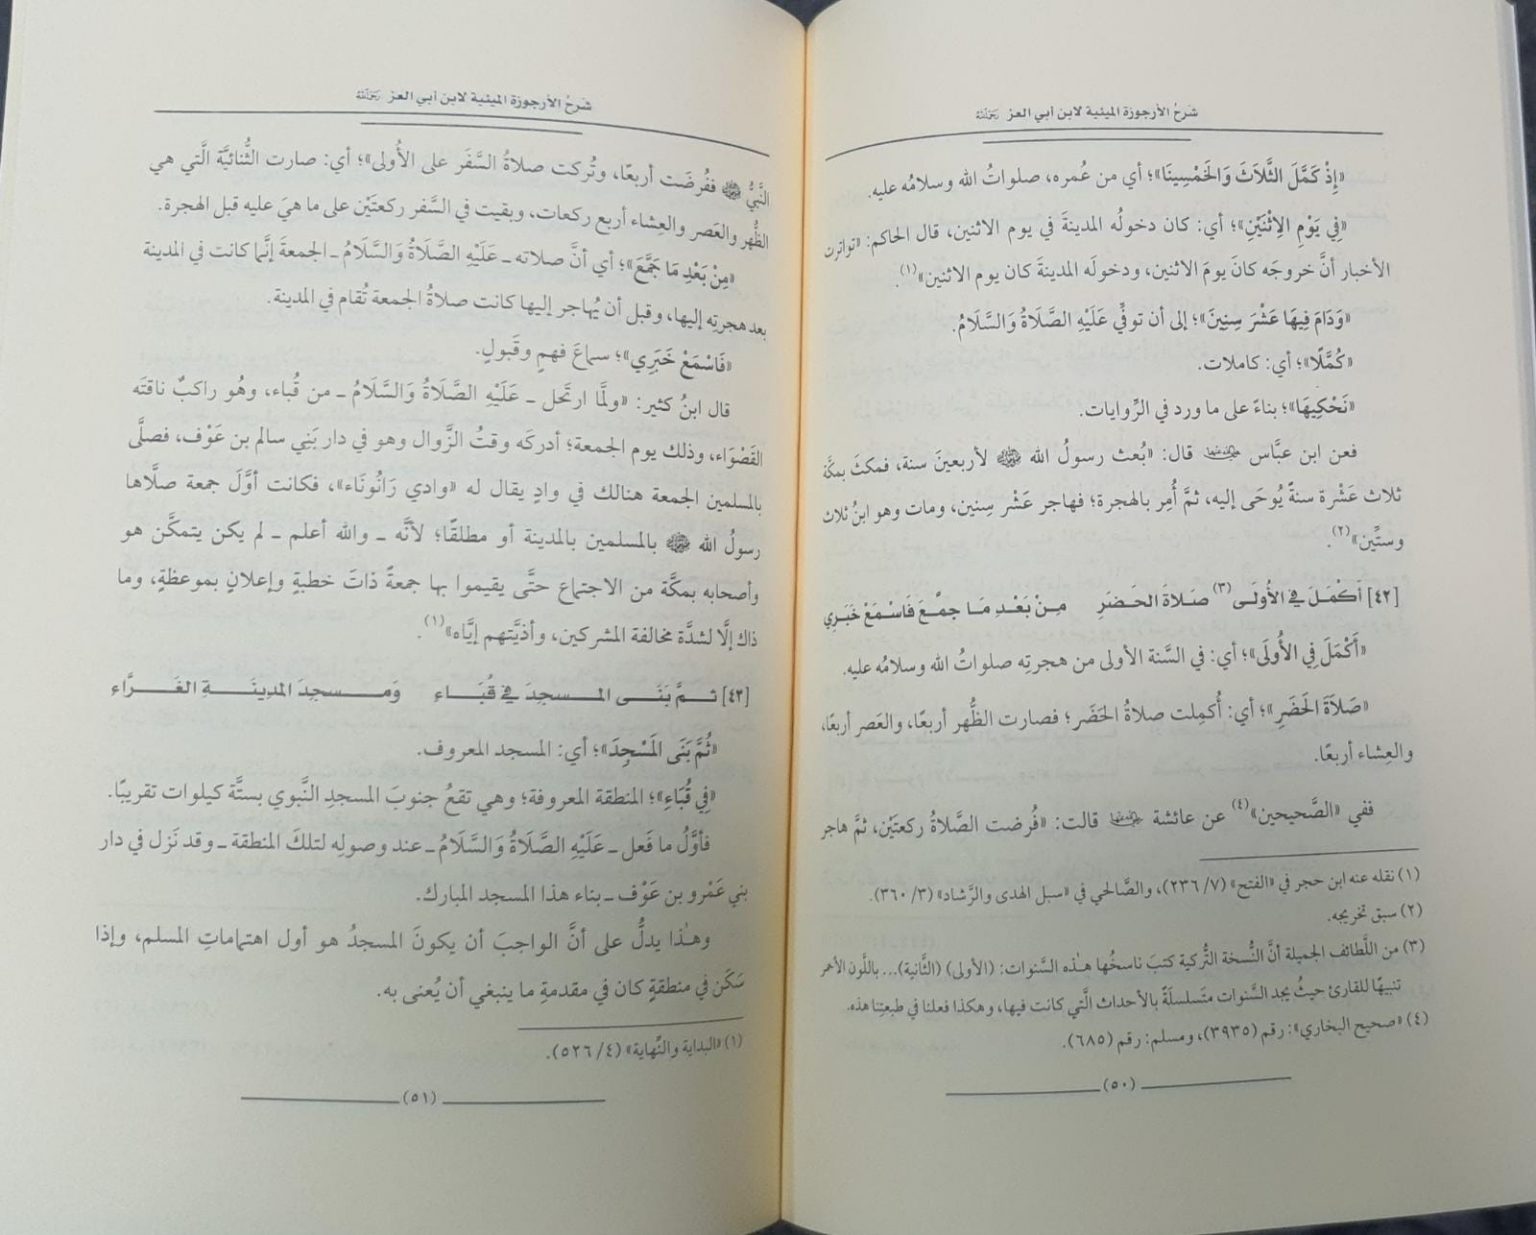 شَرحُ الأرجوزة الميئية لابن أبي العز رَحِمَهُ اللَّهُ
«إِذْ كَمَّلَ الثَّلَاثَ وَالخَمْسِينَا»؛ أي من عُمره، صلواتُ الله وسلامُه عليه.
«فِي يَوْمِ الِاثْنَيْنِ»؛ أي: كان دخولُه المدينةَ في يوم الاثنين، قال الحاكم: «تواترت
الأخبار أنَّ خروجَه كانَ يومَ الاثنين، ودخولَه المدينةَ كان يوم الاثنين»(١).
«وَدَامَ فِيهَا عَشْرَ سِنِينَ»؛ إلى أن توفِّيَ عَلَيْهِ الصَّلَاةُ وَالسَّلَامُ.
«كُمَّلًا»؛ أي: كاملات.
«نَحْكِيهَا»؛ بناءً على ما ورد في الرِّوايات.
فعن ابن عبَّاس رضي الله عنهما قال: «بُعث رسولُ الله ﷺ لأربعينَ سنة، فمكثَ بمكَّة
ثلاث عَشْرة سنةً يُوحَى إليه، ثمَّ أُمِر بالهجرة؛ فهاجر عَشْر سِنين، ومات وهو ابنُ ثلاث
وستِّين»(٢).
[٤٢] أَكْمَلَ فِي الأُولَى(٣) صَلاةَ الحَضَرِ مِنْ بَعْدِ مَا جمَّعَ فَاسْمَعْ خَبَرِي
«أَكْمَلَ فِي الأُولَى»؛ أي: في السَّنة الأولى من هجرتِه صلواتُ الله وسلامُه عليه.
«صَلَاةَ الحَضَرِ»؛ أي: أُكمِلت صلاةُ الحَضَر؛ فصارت الظُّهر أربعًا، والعَصر أربعًا،
والعِشاء أربعًا.
ففي «الصَّحيحين»(٤) عن عائشة رضي الله عنها قالت: «فُرضت الصَّلاةُ ركعتَيْن، ثمَّ هاجر
(١) نقله عنه ابن حجر في «الفتح» (٧/ ٢٣٦)، والصَّالحي في «سبل الهدى والرَّشاد» (٣/ ٣٦٠).
(٢) سبق تخريجه.
(٣) من اللَّطائف الجميلة أنَّ النُّسخة التُّركية كتبَ ناسخُها هـٰذه السَّنوات: (الأولى) (الثَّانية)... باللَّون الأحمر
تنبيهًا للقارئ حيثُ يجد السَّنوات متَسلسلَةً بالأحداث الَّتي كانت فيها، وهكذا فعلنا في طبعتِنا هذه.
(٤) «صحيح البخاري»: رقم (٣٩٣٥)، ومسلم: رقم (٦٨٥).
(٥٠)
شَرحُ الأرجوزة الميئية لابن أبي العز رَحِمَهُ اللَّهُ
النَّبيُّ ﷺ ففُرضَت أربعًا، وتُركت صلاةُ السَّفَر على الأُولى»؛ أي: صارت الثُّنائيَّة الَّتي هي
الظُّهر والعَصر والعِشاء أربع ركعات، وبقيت في السَّفر ركعتَيْن على ما هيَ عليه قبل الهجرة.
«مِنْ بَعْدِ مَا جَمَّعَ»؛ أي أنَّ صلاته ـ عَلَيْهِ الصَّلَاةُ وَالسَّلَامُ ـ الجمعةَ إنَّما كانت في المدينة
بعد هجرتِه إليها، وقبل أن يُهاجر إليها كانت صلاةُ الجمعة تُقام في المدينة.
«فَاسْمَعْ خَبَرِي»؛ سماعَ فهمٍ وقَبولٍ.
قال ابنُ كثير: «ولمَّا ارتَحل ـ عَلَيْهِ الصَّلَاةُ وَالسَّلَامُ ـ من قُباء، وهُو راكبٌ ناقتَه
القَصْوَاء، وذلك يوم الجمعة؛ أدركَه وقتُ الزَّوال وهو في دار بَنِي سالم بن عَوْف، فصلَّى
بالمسلمين الجمعة هنالك في وادٍ يقال له «وادي رَانُونَاء»، فكانت أوَّلَ جمعة صلَّاها
رسولُ الله ﷺ بالمسلمين بالمدينة أو مطلقًا؛ لأنَّه ـ والله أعلم ـ لم يكن يتمكَّن هو
وأصحابه بمكَّة من الاجتماع حتَّى يقيموا بها جمعةً ذاتَ خطبةٍ وإعلانٍ بموعظةٍ، وما
ذاك إلَّا لشدَّة مخالفة المشركين، وأذيَّتهم إيَّاه»(١).
[٤٣] ثمَّ بَنَى المسجدَ في قُبَاءِ وَمسجدَ المدينَةِ الغَرَّاءِ
«ثُمَّ بَنَى المَسْجِدَ»؛ أي: المسجد المعروف.
«فِي قُبَاءِ»؛ المنطقة المعروفة؛ وهي تقعُ جنوبَ المسجدِ النَّبوي بستَّة كيلوات تقريبًا.
فأوَّلُ ما فَعل ـ عَلَيْهِ الصَّلَاةُ وَالسَّلَامُ ـ عند وصولِه لتلكَ المنطقة ـ وقد نَزل في دار
بني عَمْرو بن عَوْف ـ بناء هذا المسجد المبارك.
وهـٰذا يدلُّ على أنَّ الواجبَ أن يكونَ المسجدُ هو أول اهتماماتِ المسلم، وإذا
سَكَن في منطقةٍ كان في مقدمةِ ما ينبغي أن يُعنى به.
(١) «البداية والنِّهاية» (٤/ ٥٢٦).
(٥١)